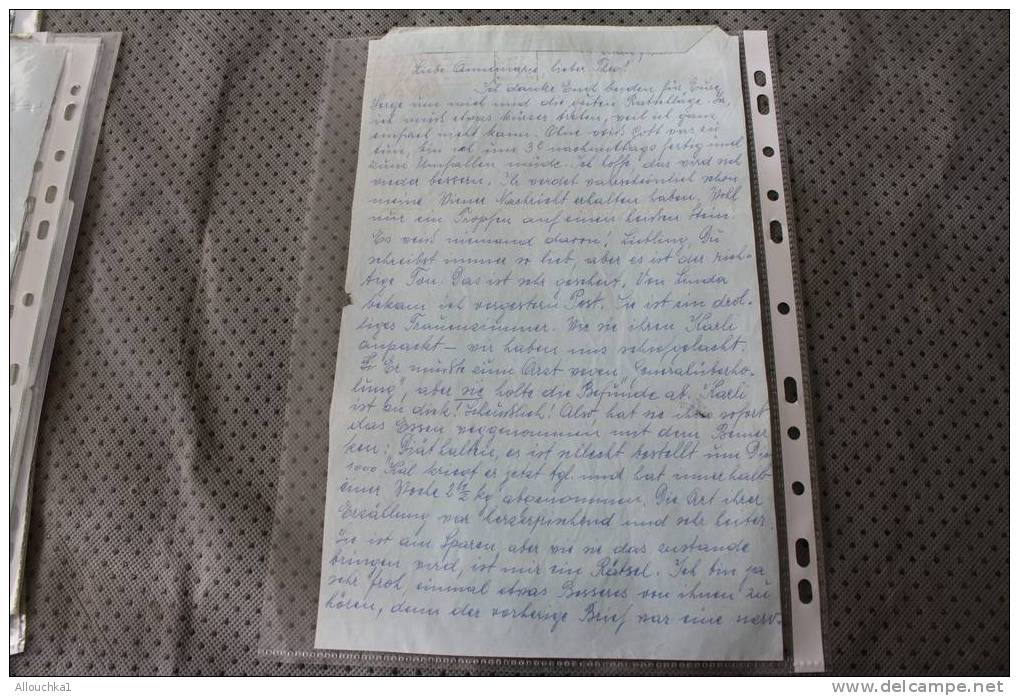 Liebe Annemarie, lieber Theo!
Ich danke Euch beiden für Eure
Sorge um mich und die guten Ratschläge. Ja,
ich muß etwas kürzer treten, weil ich ganz
einfach nicht kann. Ohne weiß Gott was zu
tun, bin ich um 3h nachmittags fertig und
zum Umfallen müde. Ich hoffe, das wird sich
wieder bessern. Ihr werdet wahrscheinlich schon
meine Wiener Nachricht erhalten haben. Wohl
nur ein Tropfen auf einen heißen Stein.
Es weiß niemand davon! Liebling, Du
schreibst immer so lieb, aber es ist der rich-
tige Ton. Das ist sehr gescheit. Von Linda
bekam ich vorgestern Post. Sie ist ein drol-
liges Frauenzimmer. Wie sie ihren Karli
anpackt – wir haben uns schiefgelacht.
Er mußte zum Arzt wegen „Generalüberho-
lung", aber sie holte die Befunde ab. „Karli
ist zu dick! Scheußlich! Also, hat sie ihm sofort
das Essen weggenommen mit dem Bemer-
ken: Diät halten, es ist schlecht bestellt um Dich
1000 Kal kriegt er jetzt tgl. und hat innerhalb
einer Woche 2 1/2 kg abgenommen. Die Art ihrer
Erzählung war herzerfrischend und sehr heiter.
Sie ist am Sparen, aber wie sie das zustande
bringen wird, ist mir ein Rätsel. Ich bin ja
sehr froh, einmal etwas Besseres von ihnen zu
hören, denn der vorherige Brief war eine nerv-
Allouchka1
delcampe.net